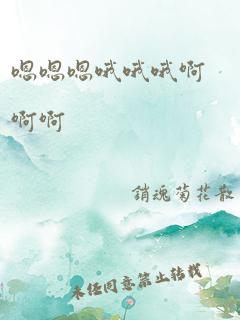 嗯嗯嗯哦哦哦啊
啊啊
銷魂菊花散
未经同意禁止转载